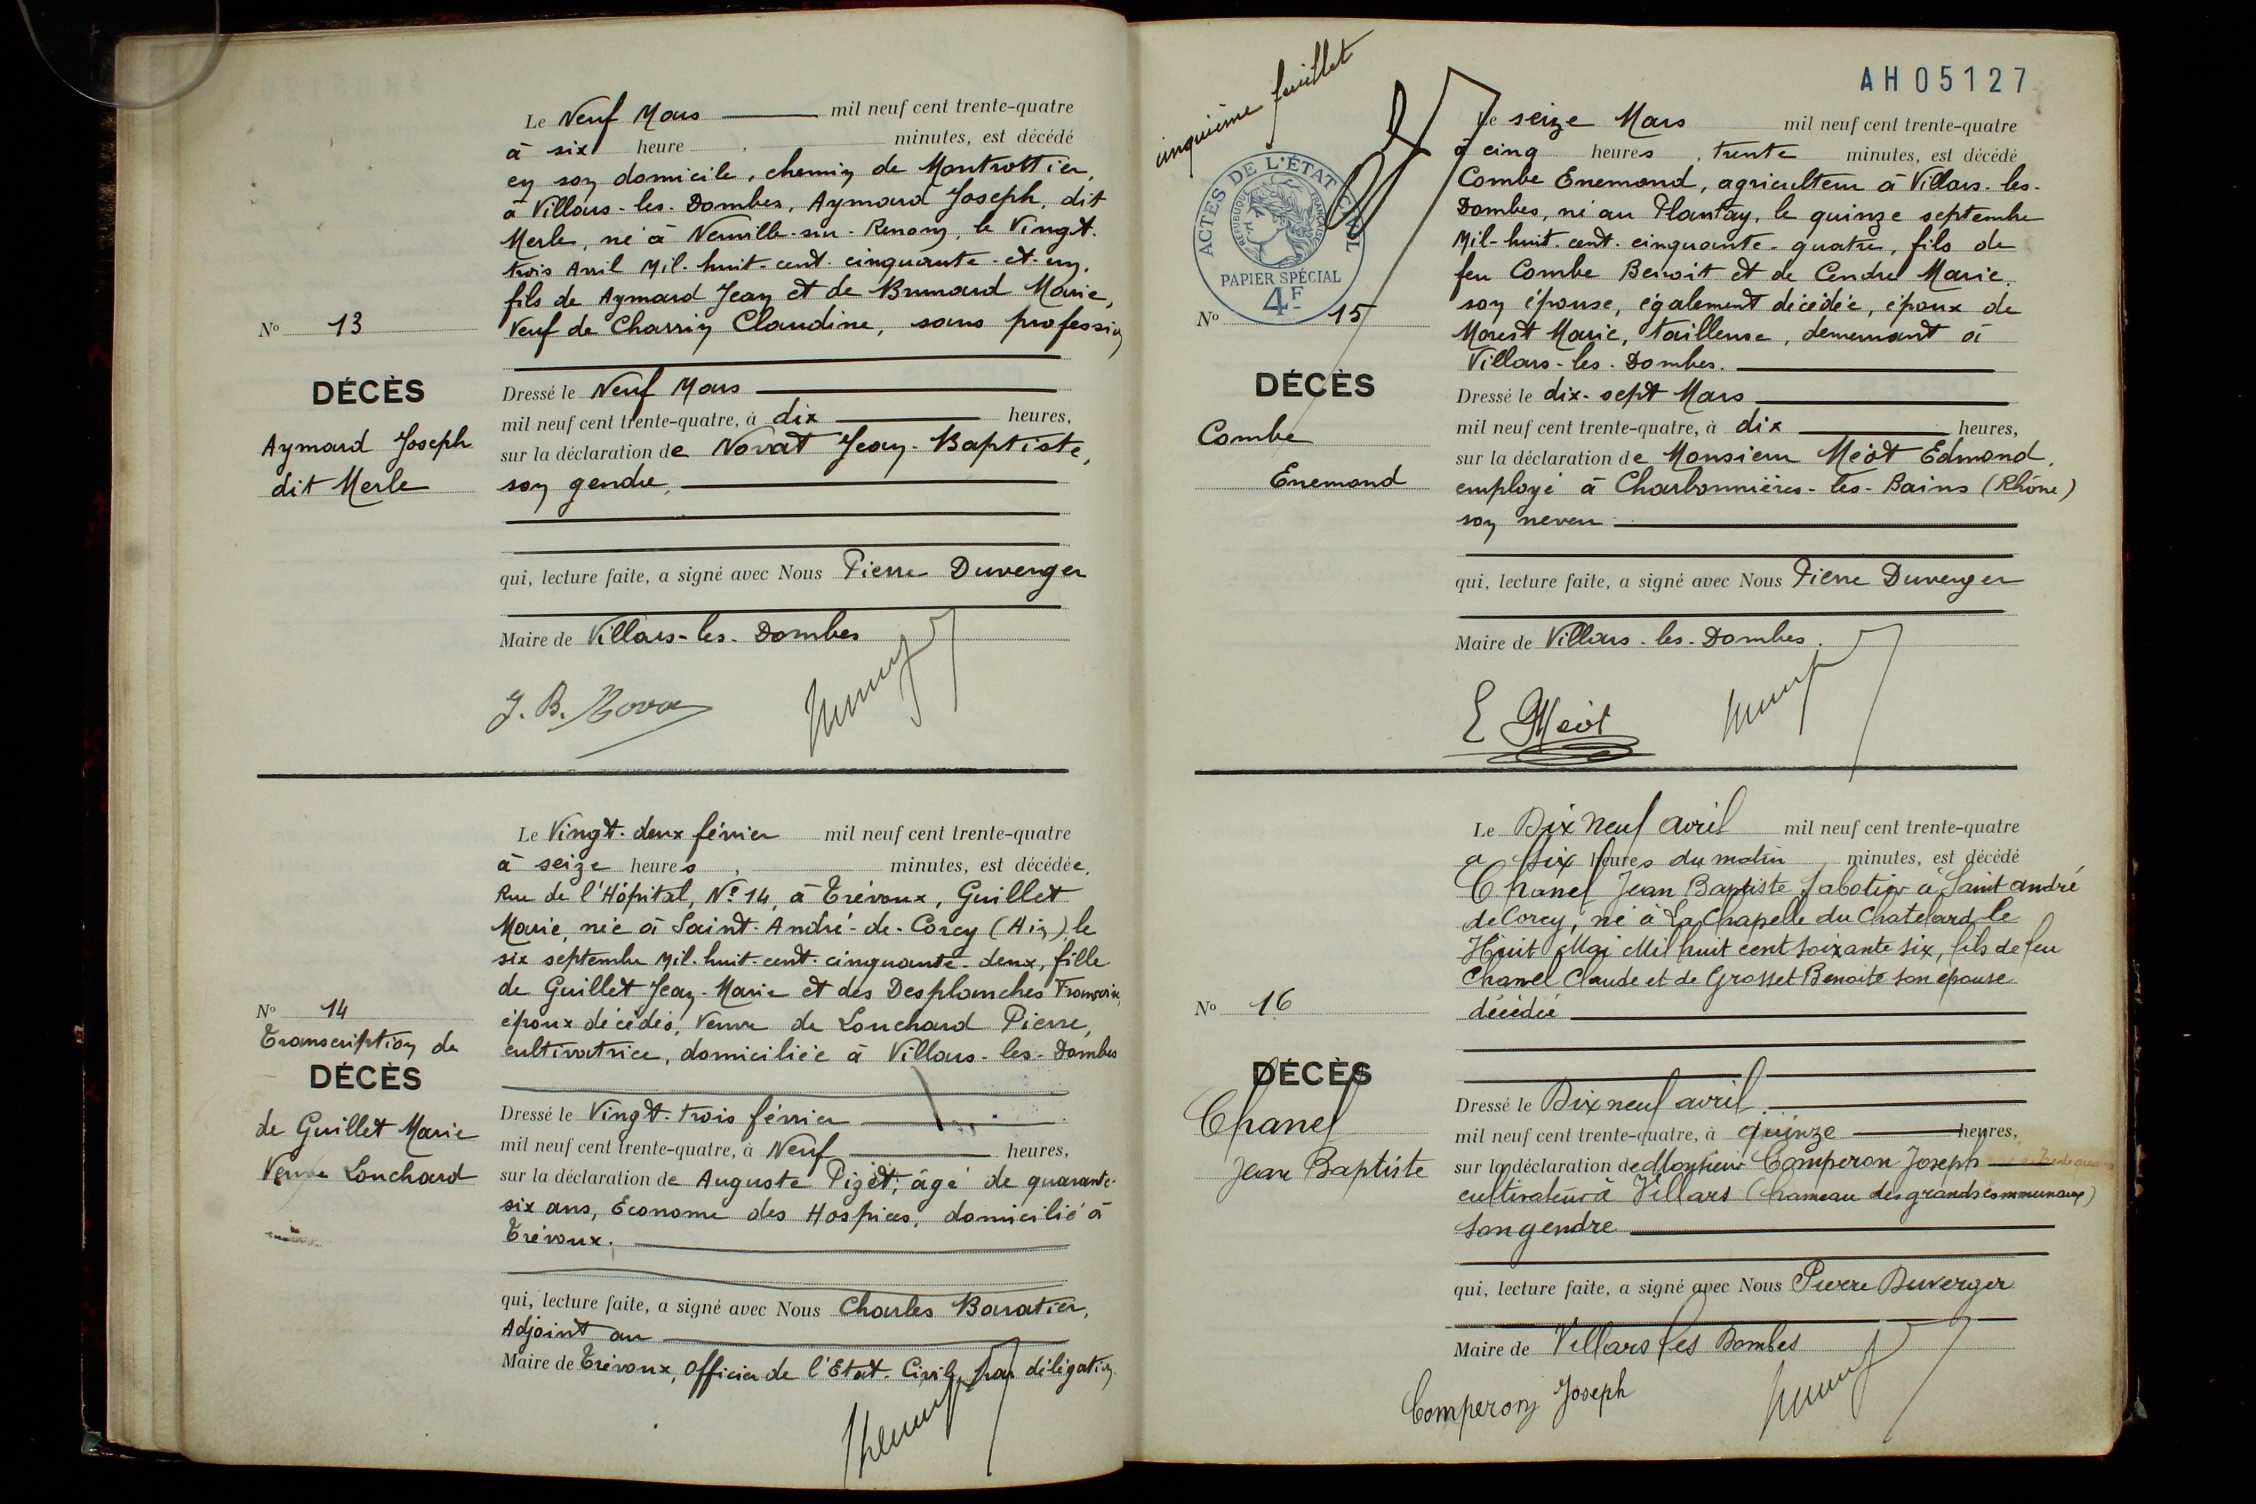 Le Neuf Mars mil neuf cent trente-quatre
à six heure minutes, est décédé
en son domicile, chemin de Montrottier,
à Villars-les-Dombes, Aymard Joseph, dit
Merle, né à Neuville-sur-Renom, le Vingt-
trois Avril Mil-huit-cent-cinquante-et-un,
fils de Aymard Jean et de Brunard Marie,
Veuf de Charrin Claudine, sans profession
No 13
DÉCÈS
Aymard Joseph
dit Merle
Dressé le Neuf Mars
mil neuf cent trente-quatre, à dix heures,
sur la déclaration de Novat Jean-Baptiste,
son gendre,
qui, lecture faite, a signé avec Nous Pierre Duverger
Maire de Villars-les-Dombes
J. B. Novat
Le Vingt-deux février mil neuf cent trente-quatre
à seize heures, minutes, est décédée,
Rue de l'Hôpital, No 14, à Trévoux, Guillet
Marie, née à Saint-André-de-Corcy (Ain), le
six septembre Mil-huit-cent-cinquante-deux, fille
de Guillet Jean-Marie et des Desplanches Françoise,
époux décédés, Veuve de Louchard Pierre,
cultivatrice, domiciliée à Villars-les-Dombes
No 14
Transcription de
DÉCÈS
de Guillet Marie
Veuve Louchard
Dressé le Vingt-trois février
mil neuf cent trente-quatre, à Neuf heures,
sur la déclaration de Auguste Pizèt, âgé de quarante-
six ans, Econome des Hospices, domicilié à
Trévoux.
qui, lecture faite, a signé avec Nous Charles Baratier,
Adjoint au
Maire de Trévoux, Officier de l'Etat-Civil par délégation
cinquième feuillet
AH05127
ACTES DE L'ÉTAT CIVIL
RÉPUBLIQUE FRANÇAISE
PAPIER SPÉCIAL
4F
Le seize Mars mil neuf cent trente-quatre
à cinq heures, trente minutes, est décédé
Combe Enemond, agriculteur à Villars-les-
Dombes, né au Plantay, le quinze septembre
Mil-huit-cent-cinquante-quatre, fils de
feu Combe Benoit et de Cendre Marie,
son épouse, également décédée, époux de
Morest Marie, tailleuse, demeurant à
Villars-les-Dombes.
No 15
DÉCÈS
Combe
Enemond
Dressé le dix-sept Mars
mil neuf cent trente-quatre, à dix heures,
sur la déclaration de Monsieur Méot Edmond,
employé à Charbonnières-les-Bains (Rhône)
son neveu
qui, lecture faite, a signé avec Nous Pierre Duverger
Maire de Villars-les-Dombes.
E Méot
Le Dix neuf avril mil neuf cent trente-quatre
a six heures du matin minutes, est décédé
Chanel Jean Baptiste Sabotier à Saint andré
de Corcy, né à La Chapelle du Chatelard le
Huit Mai Mil huit cent soixante six, fils de feu
Chanel Claude et de Grosset Benoite son epouse
décédée
No 16
DÉCÈS
Chanel
Jean Baptiste
Dressé le Dix neuf avril
mil neuf cent trente-quatre, à quinze heures,
sur la déclaration de Monsieur Comperon Joseph
cultivateur à Villars (hameau des grands communaux)
son gendre
qui, lecture faite, a signé avec Nous Pierre Duverger
Maire de Villars les Dombes
Comperon Joseph